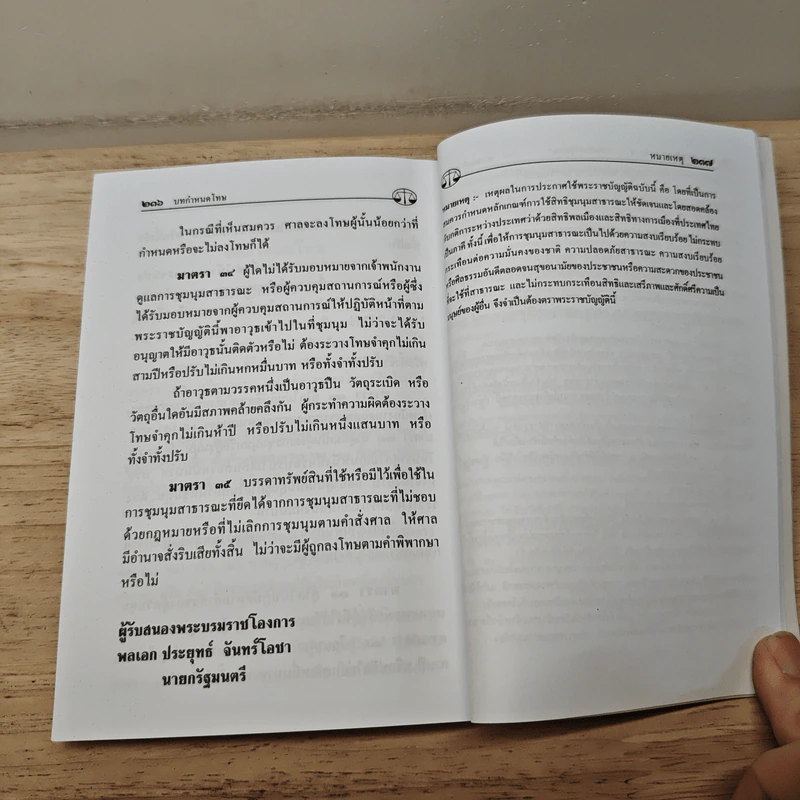 ๒๓๖ บทกำหนดโทษ
ในกรณีที่เห็นสมควร ศาลจะลงโทษผู้นั้นน้อยกว่าที่
กำหนดหรือจะไม่ลงโทษก็ได้
มาตรา ๓๔ ผู้ใดไม่ได้รับมอบหมายจากเจ้าพนักงาน
ดูแลการชุมนุมสาธารณะ หรือผู้ควบคุมสถานการณ์หรือผู้ซึ่ง
ได้รับมอบหมายจากผู้ควบคุมสถานการณ์ให้ปฏิบัติหน้าที่ตาม
พระราชบัญญัตินี้พาอาวุธเข้าไปในที่ชุมนุม ไม่ว่าจะได้รับ
อนุญาตให้มีอาวุธนั้นติดตัวหรือไม่ ต้องระวางโทษจำคุกไม่เกิน
สามปีหรือปรับไม่เกินหกหมื่นบาท หรือทั้งจำทั้งปรับ
ถ้าอาวุธตามวรรคหนึ่งเป็นอาวุธปืน วัตถุระเบิด หรือ
วัตถุอื่นใดอันมีสภาพคล้ายคลึงกัน ผู้กระทำความผิดต้องระวาง
โทษจำคุกไม่เกินห้าปี หรือปรับไม่เกินหนึ่งแสนบาท หรือ
ทั้งจำทั้งปรับ
มาตรา ๓๕ บรรดาทรัพย์สินที่ใช้หรือมีไว้เพื่อใช้ใน
การชุมนุมสาธารณะที่ยึดได้จากการชุมนุมสาธารณะที่ไม่ชอบ
ด้วยกฎหมายหรือที่ไม่เลิกการชุมนุมตามคำสั่งศาล ให้ศาล
มีอำนาจสั่งริบเสียทั้งสิ้น ไม่ว่าจะมีผู้ถูกลงโทษตามคำพิพากษา
หรือไม่
ผู้รับสนองพระบรมราชโองการ
พลเอก ประยุทธ์ จันทร์โอชา
นายกรัฐมนตรี
หมายเหตุ ๒๓๗
หมายเหตุ :- เหตุผลในการประกาศใช้พระราชบัญญัติฉบับนี้ คือ โดยที่เป็นการ
สมควรกำหนดหลักเกณฑ์การใช้สิทธิชุมนุมสาธารณะให้ชัดเจนและโดยสอดคล้อง
กับกติการะหว่างประเทศว่าด้วยสิทธิพลเมืองและสิทธิทางการเมืองที่ประเทศไทย
เป็นภาคี ทั้งนี้ เพื่อให้การชุมนุมสาธารณะเป็นไปด้วยความสงบเรียบร้อย ไม่กระทบ
กระเทือนต่อความมั่นคงของชาติ ความปลอดภัยสาธารณะ ความสงบเรียบร้อย
หรือศีลธรรมอันดีตลอดจนสุขอนามัยของประชาชนหรือความสะดวกของประชาชน
ที่จะใช้ที่สาธารณะ และไม่กระทบกระเทือนสิทธิและเสรีภาพและศักดิ์ศรีความเป็น
มนุษย์ของผู้อื่น จึงจำเป็นต้องตราพระราชบัญญัตินี้